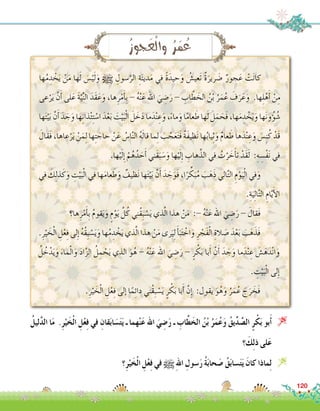 عُمَرُ وَالْعَجُوزُ
كَانَتْ عَجُوزٌ ضَرِيرَةٌ تَعِيشُ وَحِيدَةً فِي مَدِينَةِ الرَّسُولِ ﷺ وَلَيْسَ لَهَا مَنْ يَخْدُمُهَا
مِنْ أَهْلِهَا. وَعَرَفَ عُمَرُ بْنُ الْخَطَّابِ – رَضِيَ اللهُ عَنْهُ – بِأَمْرِهَا، وَعَقَدَ النِّيَّةَ عَلَى أَنْ يَرْعَى
شُؤُونَهَا وَيَخْدُمَهَا، فَحَمَلَ لَهَا طَعَامًا وَمَاءً، وَعِنْدَمَا دَخَلَ الْبَيْتَ بَعْدَ اسْتِئْذَانِهَا وَجَدَ أَنَّ بَيْتَهَا
قَدْ كُنِسَ وَعِنْدَهَا طَعَامٌ وَثِيَابُهَا نَظِيفَةٌ فَتَعَجَّبَ لَمَّا فَاقَهُ النَّاسُ عَنْ حَاجَتِهَا لِمَنْ يَرْعَاهَا، فَقَالَ
فِي نَفْسِهِ: لَقَدْ تَأَخَّرْتُ فِي الذَّهَابِ إِلَيْهَا وَسَبَقَنِي أَحَدُهُمْ إِلَيْهَا.
وَفِي الْيَوْمِ التَّالِي ذَهَبَ مُبَكِّرًا، فَوَجَدَ أَنَّ بَيْتَهَا نَظِيفٌ وَطَعَامَهَا فِي الْبَيْتِ وَكَذلِكَ فِي
الْأَيَّامِ التَّالِيَةِ.
فَقَالَ – رَضِيَ اللهُ عَنْهُ – : مَنْ هذَا الَّذِي يَسْبِقُنِي كُلَّ يَوْمٍ وَيَقُومُ بِأَمْرِهَا؟
فَذَهَبَ بَعْدَ صَلَاةِ الْفَجْرِ، وَاخْتَبَأَ لِيَرَى مَنْ هذَا الَّذِي يَخْدُمُهَا وَيَسْبِقُهُ إِلَى فِعْلِ الْخَيْرِ.
وَانْدَهَشَ عِنْدَمَا وَجَدَ أَنَّ أَبَا بَكْرٍ – رَضِيَ اللهُ عَنْهُ – هُوَ الَّذِي يَحْمِلُ الزَّادَ وَالْمَاءَ، وَيَدْخُلُ
إِلَى الْبَيْتِ.
فَخَرَجَ عُمَرُ وَهُوَ يَقُولُ: إِنَّ أَبَا بَكْرٍ يَسْبِقُنِي دَائِمًا إِلَى فِعْلِ الْخَيْرِ.
أَبُو بَكْرٍ الصِّدِّيقُ وَعُمَرُ بْنُ الْخَطَّابِ ـ رَضِيَ اللهُ عَنْهُمَا ـ يَتَسَابَقَانِ فِي فِعْلِ الْخَيْرِ. مَا الدَّلِيلُ
عَلَى ذَلِكَ؟
لِمَاذَا كَانَ يَتَسَابَقُ صَحَابَةُ رَسُولِ اللهِ ﷺ فِي فِعْلِ الْخَيْرِ؟
120